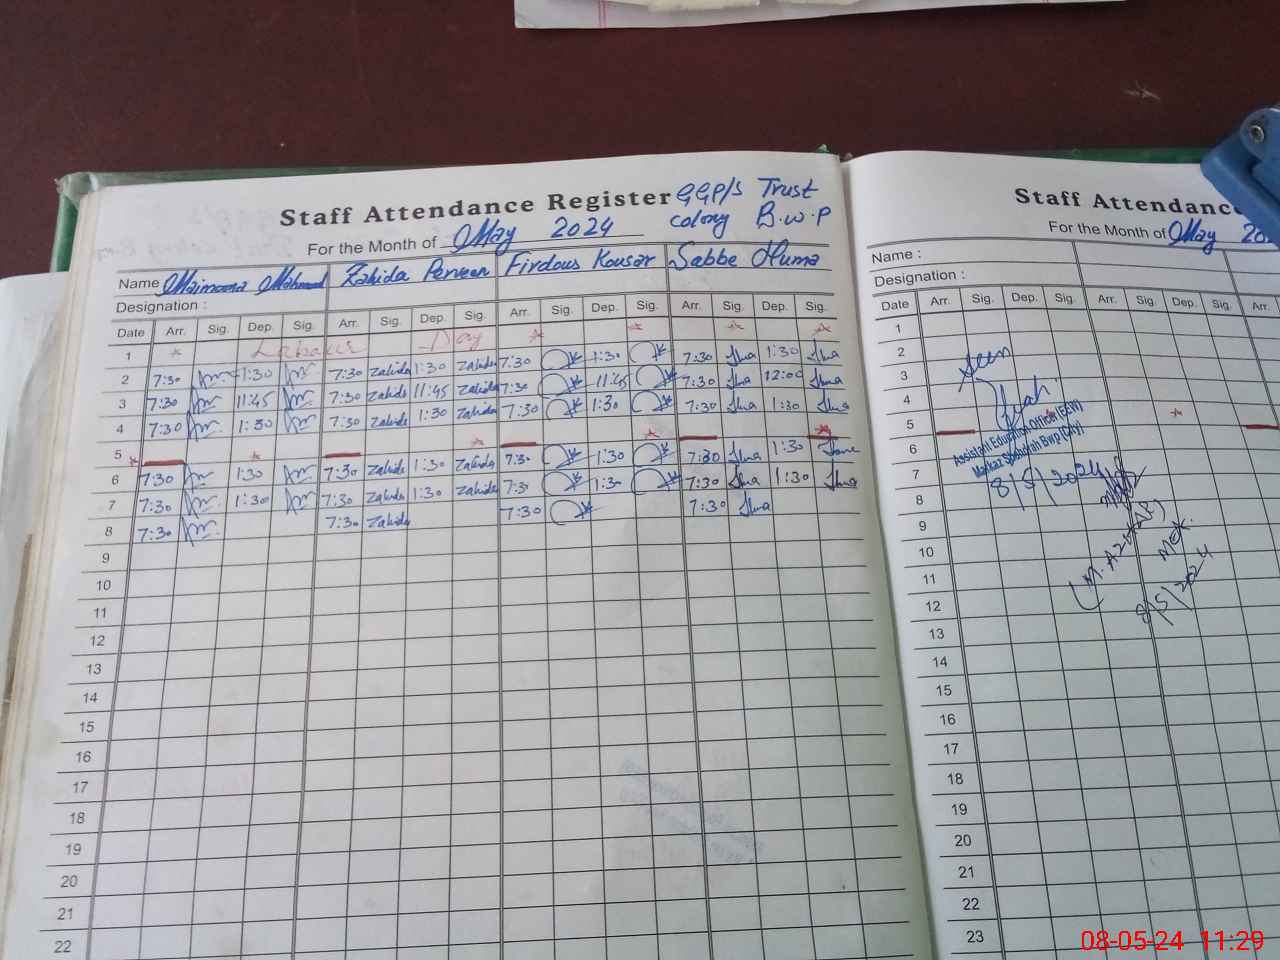 Staff Attendance Register GGP/S Trust
colony B.W.P
For the Month of May 2024
Name Maimoona Mahmood Zahida Perveen Firdous Kousar Sabbe Huma
Designation :
Date Arr. Sig. Dep. Sig. Arr. Sig. Dep. Sig. Arr. Sig. Dep. Sig. Arr. Sig. Dep. Sig.
1 Labour Day
2 7:30 1:30 7:30 Zahida 1:30 Zahida 7:30 1:30 7:30 Huma 1:30 Huma
3 7:30 11:45 7:30 Zahida 11:45 Zahida 7:30 11:45 7:30 Huma 12:00 Huma
4 7:30 1:30 7:30 Zahida 1:30 Zahida 7:30 1:30 7:30 Huma 1:30 Huma
5
6 7:30 1:30 7:30 Zahida 1:30 Zahida 7:30 1:30 7:30 Huma 1:30 Huma
7 7:30 1:30 7:30 Zahida 1:30 Zahida 7:30 1:30 7:30 Huma 1:30 Huma
8 7:30 7:30 Zahida 7:30 7:30 Huma
9
10
11
12
13
14
15
16
17
18
19
20
21
22
Staff Attendance
For the Month of May
Name :
Designation :
Date Arr. Sig. Dep. Sig. Arr. Sig. Dep. Sig. Arr.
1
2
3
4
5
6
7
8
9
10
11
12
13
14
15
16
17
18
19
20
21
22
23
Seen
Assistant Education Officer (EEW)
Markaz Shahdrah Bwp (City)
8/5/2024
(M. AZHAR)
MEA.
8/5/2024
08-05-24 11:29